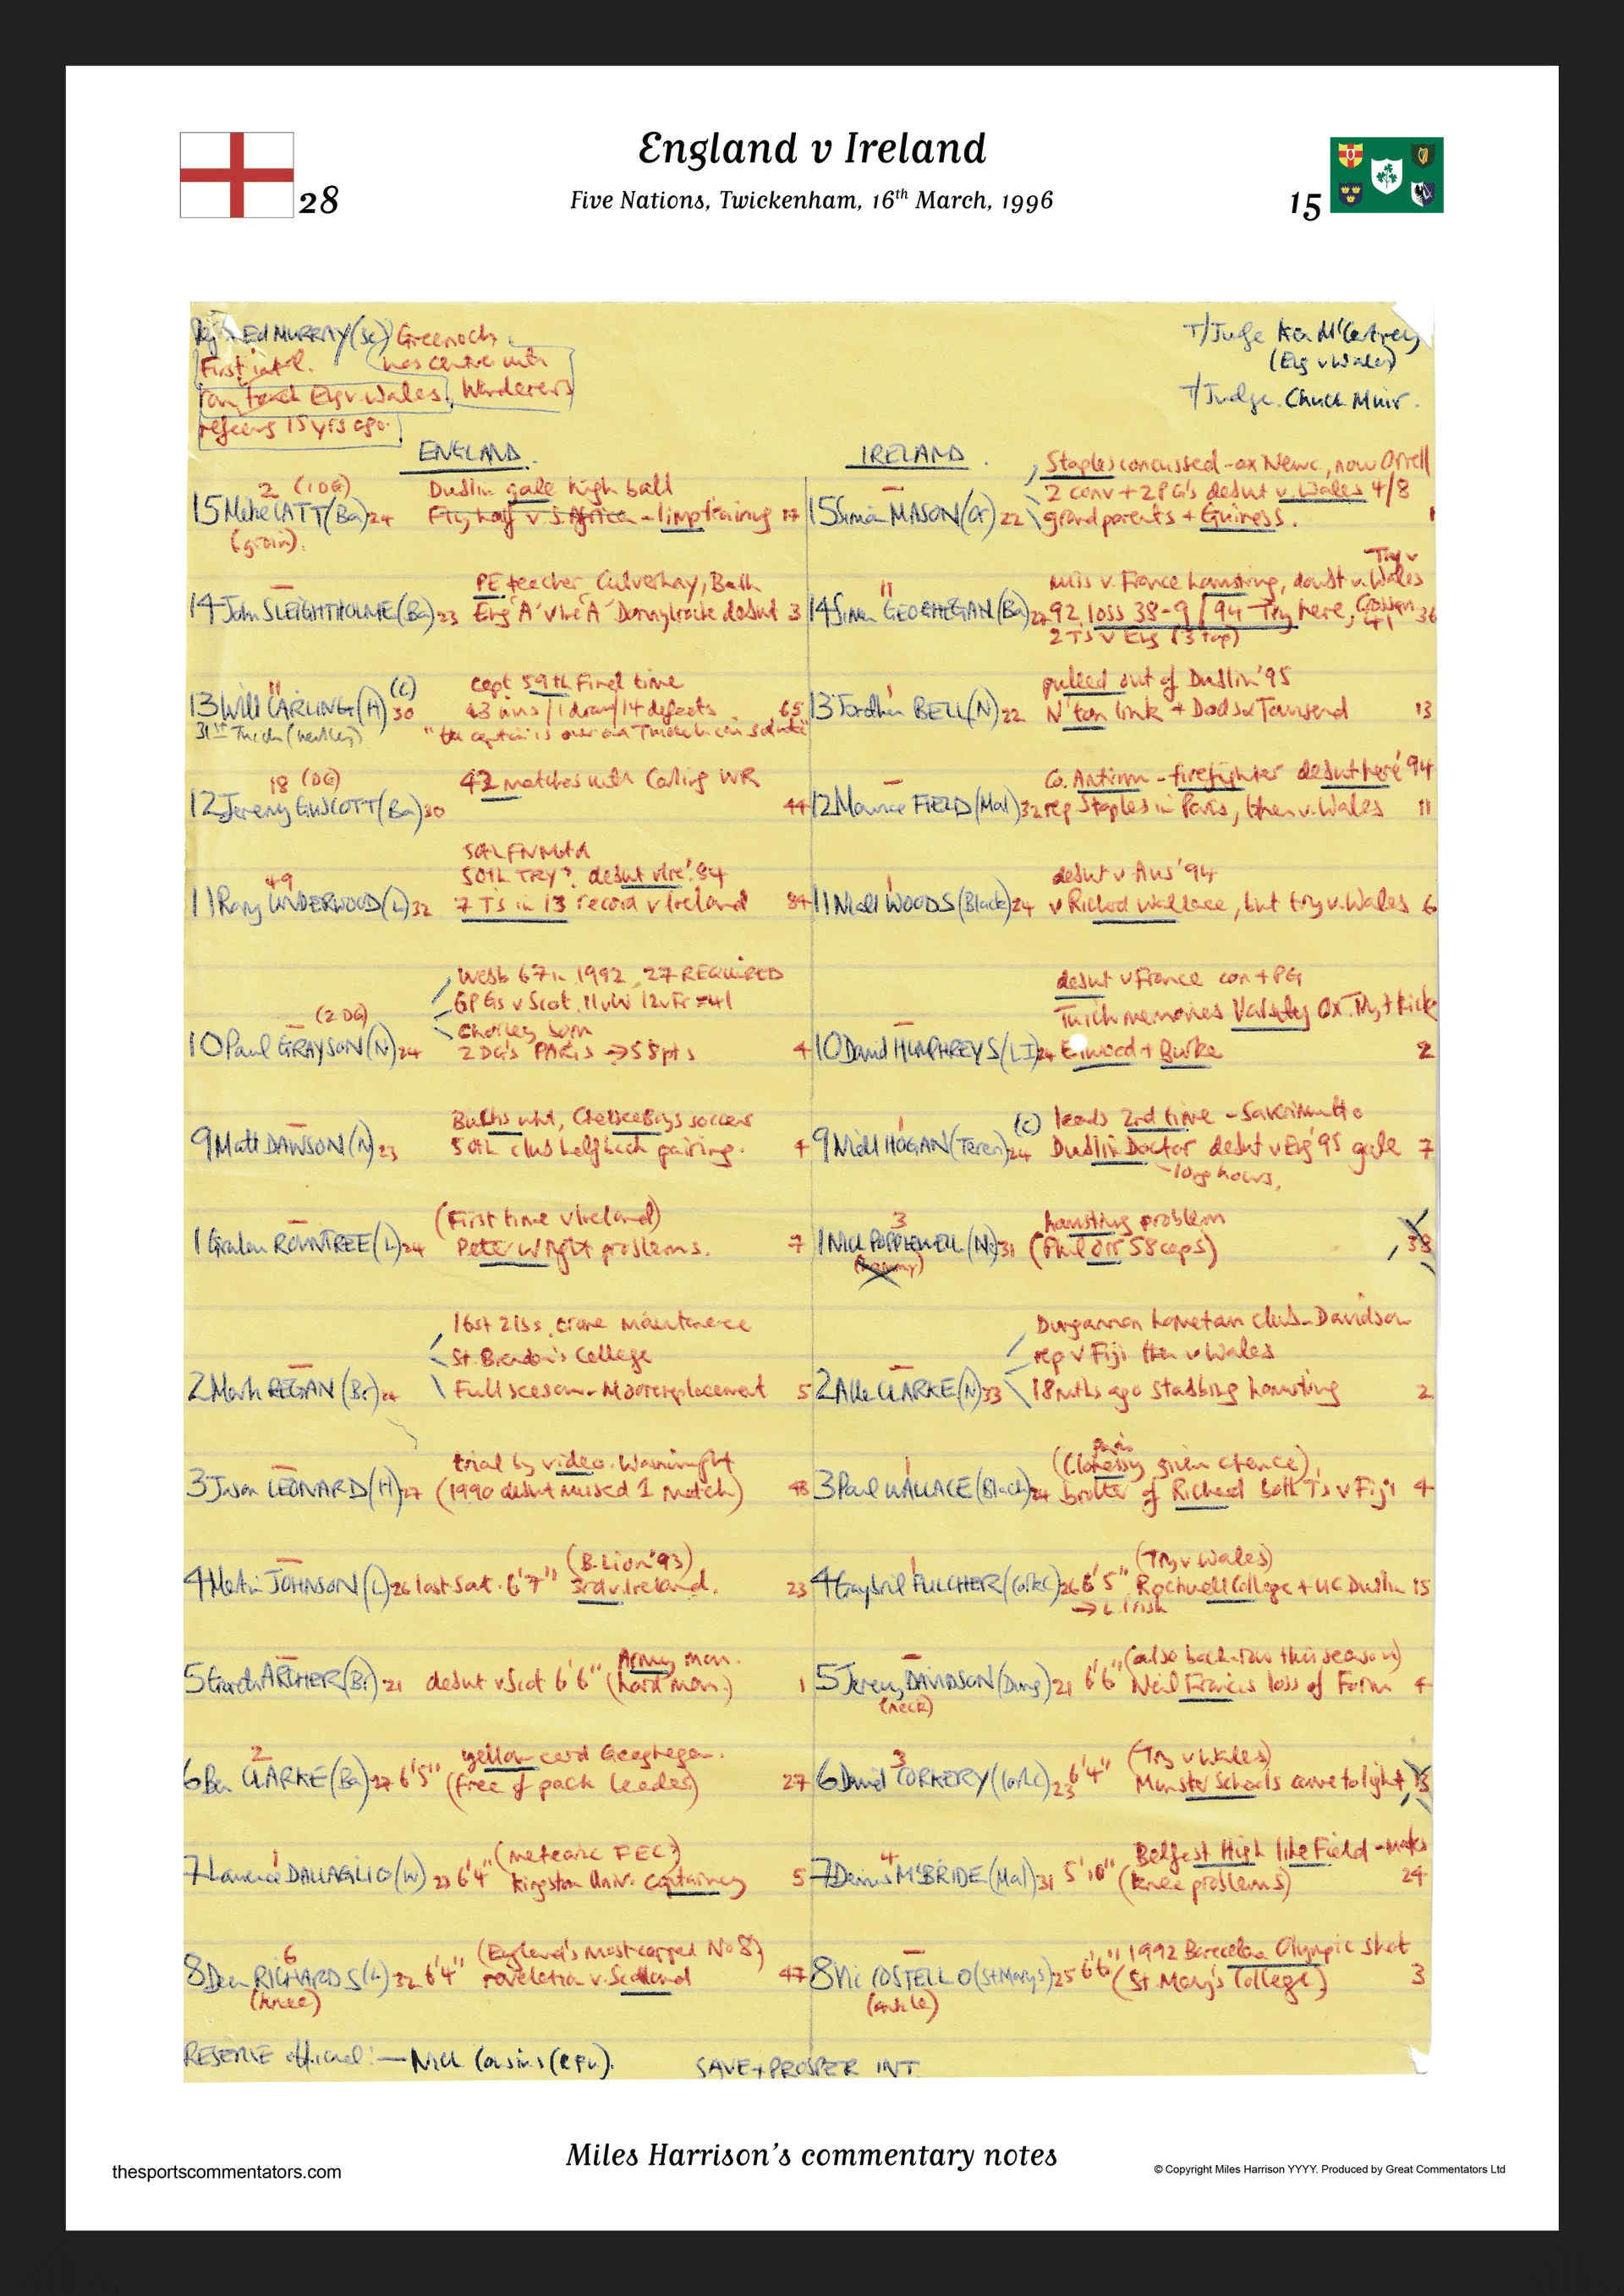 England v Ireland
28
Five Nations, Twickenham, 16th March, 1996
15
Ed MURRAY (Sc) Greenock
First int'l. was centre with
ran touch Eng v Wales, Wanderers
refeeing 15 yrs ago.
T/Judge Ken McCartney
(Eng v Wales)
T/Judge. Chuck Muir.
ENGLAND.
2 (1DG) Dublin gale high ball
15 Mike CATT (Ba) 24 Fly half v. S. Africa - limp training 17
(groin).
14 John SLEIGHTHOLME (Ba) 23 PE teacher, Culverhay, Bath
Eng 'A' v Ire 'A' Donnybrook debut 3
11 (C) capt 59th Final time
13 Will CARLING (H) 30 43 wins / 1 draw / 14 defeats 65
31st Twick
18 (DG) 42 matches with Carling WR
12 Jeremy GUSCOTT (Ba) 30 44
50th TRY? debut v Ire '84
49
11 Rory UNDERWOOD (L) 32 7 Ts in 13 record v Ireland 84
Webb 67 in 1992 27 REQUIRED
6 PGs v Scot. 11 v W 12 v Fr = 41
(2 DG) Chorley born
10 Paul GRAYSON (N) 24 2 DG's PARIS → 58 pts 4
Bucks cht, Chelsea Boys soccer
9 Matt DAWSON (N) 23 50th club halfback pairing. 4
(First time v Ireland)
1 Graham ROWNTREE (L) 24 Peter Wright problems. 7
16st 2lbs. crane maintenance
St. Brendan's College
2 Mark REGAN (Br) 24 Full season - Moore replacement 5
trial by video. Wainwright
3 Jason LEONARD (H) 27 (1990 debut missed 1 match) 48
(B. Lion '93)
4 Martin JOHNSON (L) 26 last Sat. 6'7" 3rd v. Ireland. 23
Army man.
5 Garath ARCHER (Br) 21 debut v Scot 6'6" (hard man.) 1
2 yellow card Geoghegan.
6 Ben CLARKE (Ba) 27 6'5" (free of pack leader) 27
1 (meteoric FEC?)
7 Lawrence DALLAGLIO (W) 23 6'4" Kingston Univ. captaincy 5
6 (England's most capped No 8)
8 Dean RICHARDS (L) 32 6'4" revelation v. Scotland 47
(knee)
IRELAND.
Staples concussed - ex Newc, now Orrell
2 conv + 2 PG's debut v. Wales 4/8
15 Simon MASON (Or) 22 grandparents + Guiness. 1
Try v Wales
miss v. France hamstring, doubt v.
11
14 Simon GEOGHEGAN (Ba) 27 92 loss 38-9 / 94 Try here, 36
2 Ts v Eng (3 top)
1 pulled out of Dublin '95
13 Jonathan BELL (N) 22 N'ton link + Dods + Townsend 13
Co. Antrim - firefighter debut here '94
12 Maurice FIELD (Mal) 32 rep Staples in Paris, then v. Wales 11
1 debut v Aus '94
11 Niall WOODS (Black) 24 v Richard Wallace, but try v. Wales 6
debut v France con + PG
Twick memories Varsity Ox. Try + kick
10 David HUMPHREYS (LI) 24 Elwood + Burke 2
1 (C) leads 2nd time
9 Niall HOGAN (Teren) 24 Dublin Doctor debut v Eng '95 gale 7
long hours.
3 hamstring problem
1 Nick POPPLEWELL (Nc) 31 (Phil Orr 58 caps) 38
(hammy)
Dungannon hometown club - Davidson
rep v Fiji then v Wales
2 Allen CLARKE (N) 33 18 mths ago stabbing hamstring 2
1 (Clohessy given chance)
3 Paul WALLACE (Black) 24 brother of Richard both Ts v Fiji 4
1 (Try v Wales)
4 Gaybriel FULCHER (CorkC) 26 6'5" Rockwell College + UC Dublin 15
→ L. Irish
(also back-row this season)
5 Jeremy DAVIDSON (Dung) 21 6'6" Neil Francis loss of Form 4
(neck)
3 (Try v Wales)
6 David CORKERY (CorkC) 23 6'4" Munster Schools came to light 13
4 Belfest High like Field
7 Denis McBRIDE (Mal) 31 5'10" (knee problems) 24
1992 Barcelona Olympic shot
8 Vic COSTELLO (St Marys) 25 6'6" (St. Mary's College) 3
(ankle)
RESERVE official: — Nick Cousins (RFU).
SAVE + PROSPER INT.
Miles Harrison's commentary notes
thesportscommentators.com
© Copyright Miles Harrison YYYY. Produced by Great Commentators Ltd